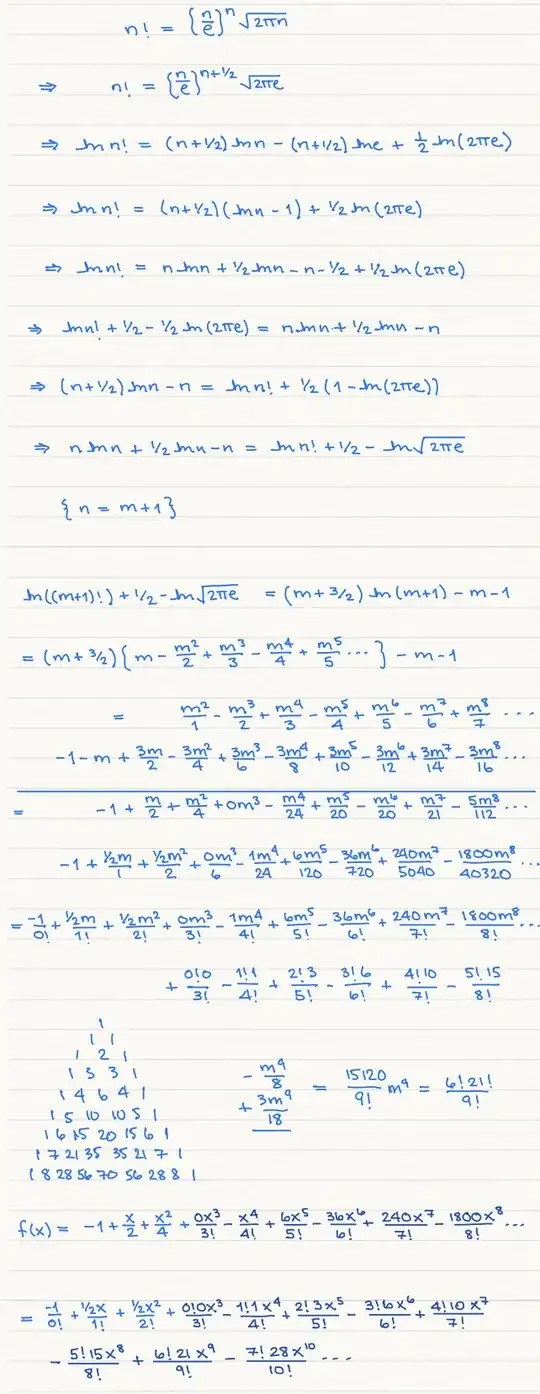 n! = {n/e}^n √(2πn)
⇒ n! = {n/e}^(n+1/2) √(2πe)
⇒ ln n! = (n+1/2) ln n − (n+1/2) ln e + 1/2 ln(2πe)
⇒ ln n! = (n+1/2)(ln n − 1) + 1/2 ln(2πe)
⇒ ln n! = n ln n + 1/2 ln n − n − 1/2 + 1/2 ln(2πe)
⇒ ln n! + 1/2 − 1/2 ln(2πe) = n ln n + 1/2 ln n − n
⇒ (n+1/2) ln n − n = ln n! + 1/2 (1 − ln(2πe))
⇒ n ln n + 1/2 ln n − n = ln n! + 1/2 − ln √(2πe)
{n = m+1}
ln((m+1)!) + 1/2 − ln √(2πe) = (m + 3/2) ln(m+1) − m − 1
= (m + 3/2) {m − m²/2 + m³/3 − m⁴/4 + m⁵/5 ...} − m − 1
= m²/1 − m³/2 + m⁴/3 − m⁵/4 + m⁶/5 − m⁷/6 + m⁸/7 ...
−1 − m + 3m/2 − 3m²/4 + 3m³/6 − 3m⁴/8 + 3m⁵/10 − 3m⁶/12 + 3m⁷/14 − 3m⁸/16 ...
= −1 + m/2 + m²/4 + 0m³ − m⁴/24 + m⁵/20 − m⁶/20 + m⁷/21 − 5m⁸/112 ...
−1 + ½m/1 + ½m²/2 + 0m³/6 − 1m⁴/24 + 6m⁵/120 − 36m⁶/720 + 240m⁷/5040 − 1800m⁸/40320 ...
= −1/0! + ½m/1! + ½m²/2! + 0m³/3! − 1m⁴/4! + 6m⁵/5! − 36m⁶/6! + 240m⁷/7! − 1800m⁸/8! ...
+ 0!0/3! − 1!1/4! + 2!3/5! − 3!6/6! + 4!10/7! − 5!15/8!
1
1 1
1 2 1
1 3 3 1
1 4 6 4 1
1 5 10 10 5 1
1 6 15 20 15 6 1
1 7 21 35 35 21 7 1
1 8 28 56 70 56 28 8 1
− m⁹/8
+ 3m⁹/18
= 15120/9! m⁹ = 6!21!/9!
f(x) = −1 + x/2 + x²/4 + 0x³/3! − x⁴/4! + 6x⁵/5! − 36x⁶/6! + 240x⁷/7! − 1800x⁸/8! ...
= −1/0! + ½x/1! + ½x²/2! + 0!0x³/3! − 1!1x⁴/4! + 2!3x⁵/5! − 3!6x⁶/6! + 4!10x⁷/7!
− 5!15x⁸/8! + 6!21x⁹/9! − 7!28x¹⁰/10! ...